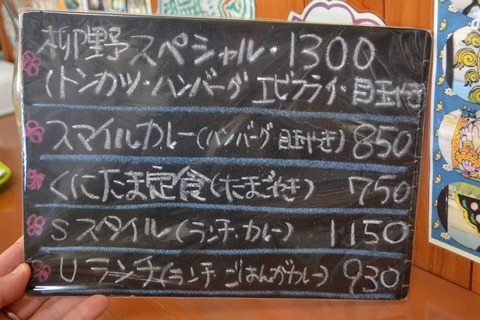 柳野スペシャル・1300
(トンカツ・ハンバーグ エビフライ・目玉やき)
スマイルカレー(ハンバーグ 目玉やき) 850
くにたま定食(たまごやき) 750
Sスタイル(ランチ・カレー) 1150
Uランチ(ランチ・ごはんがカレー) 930